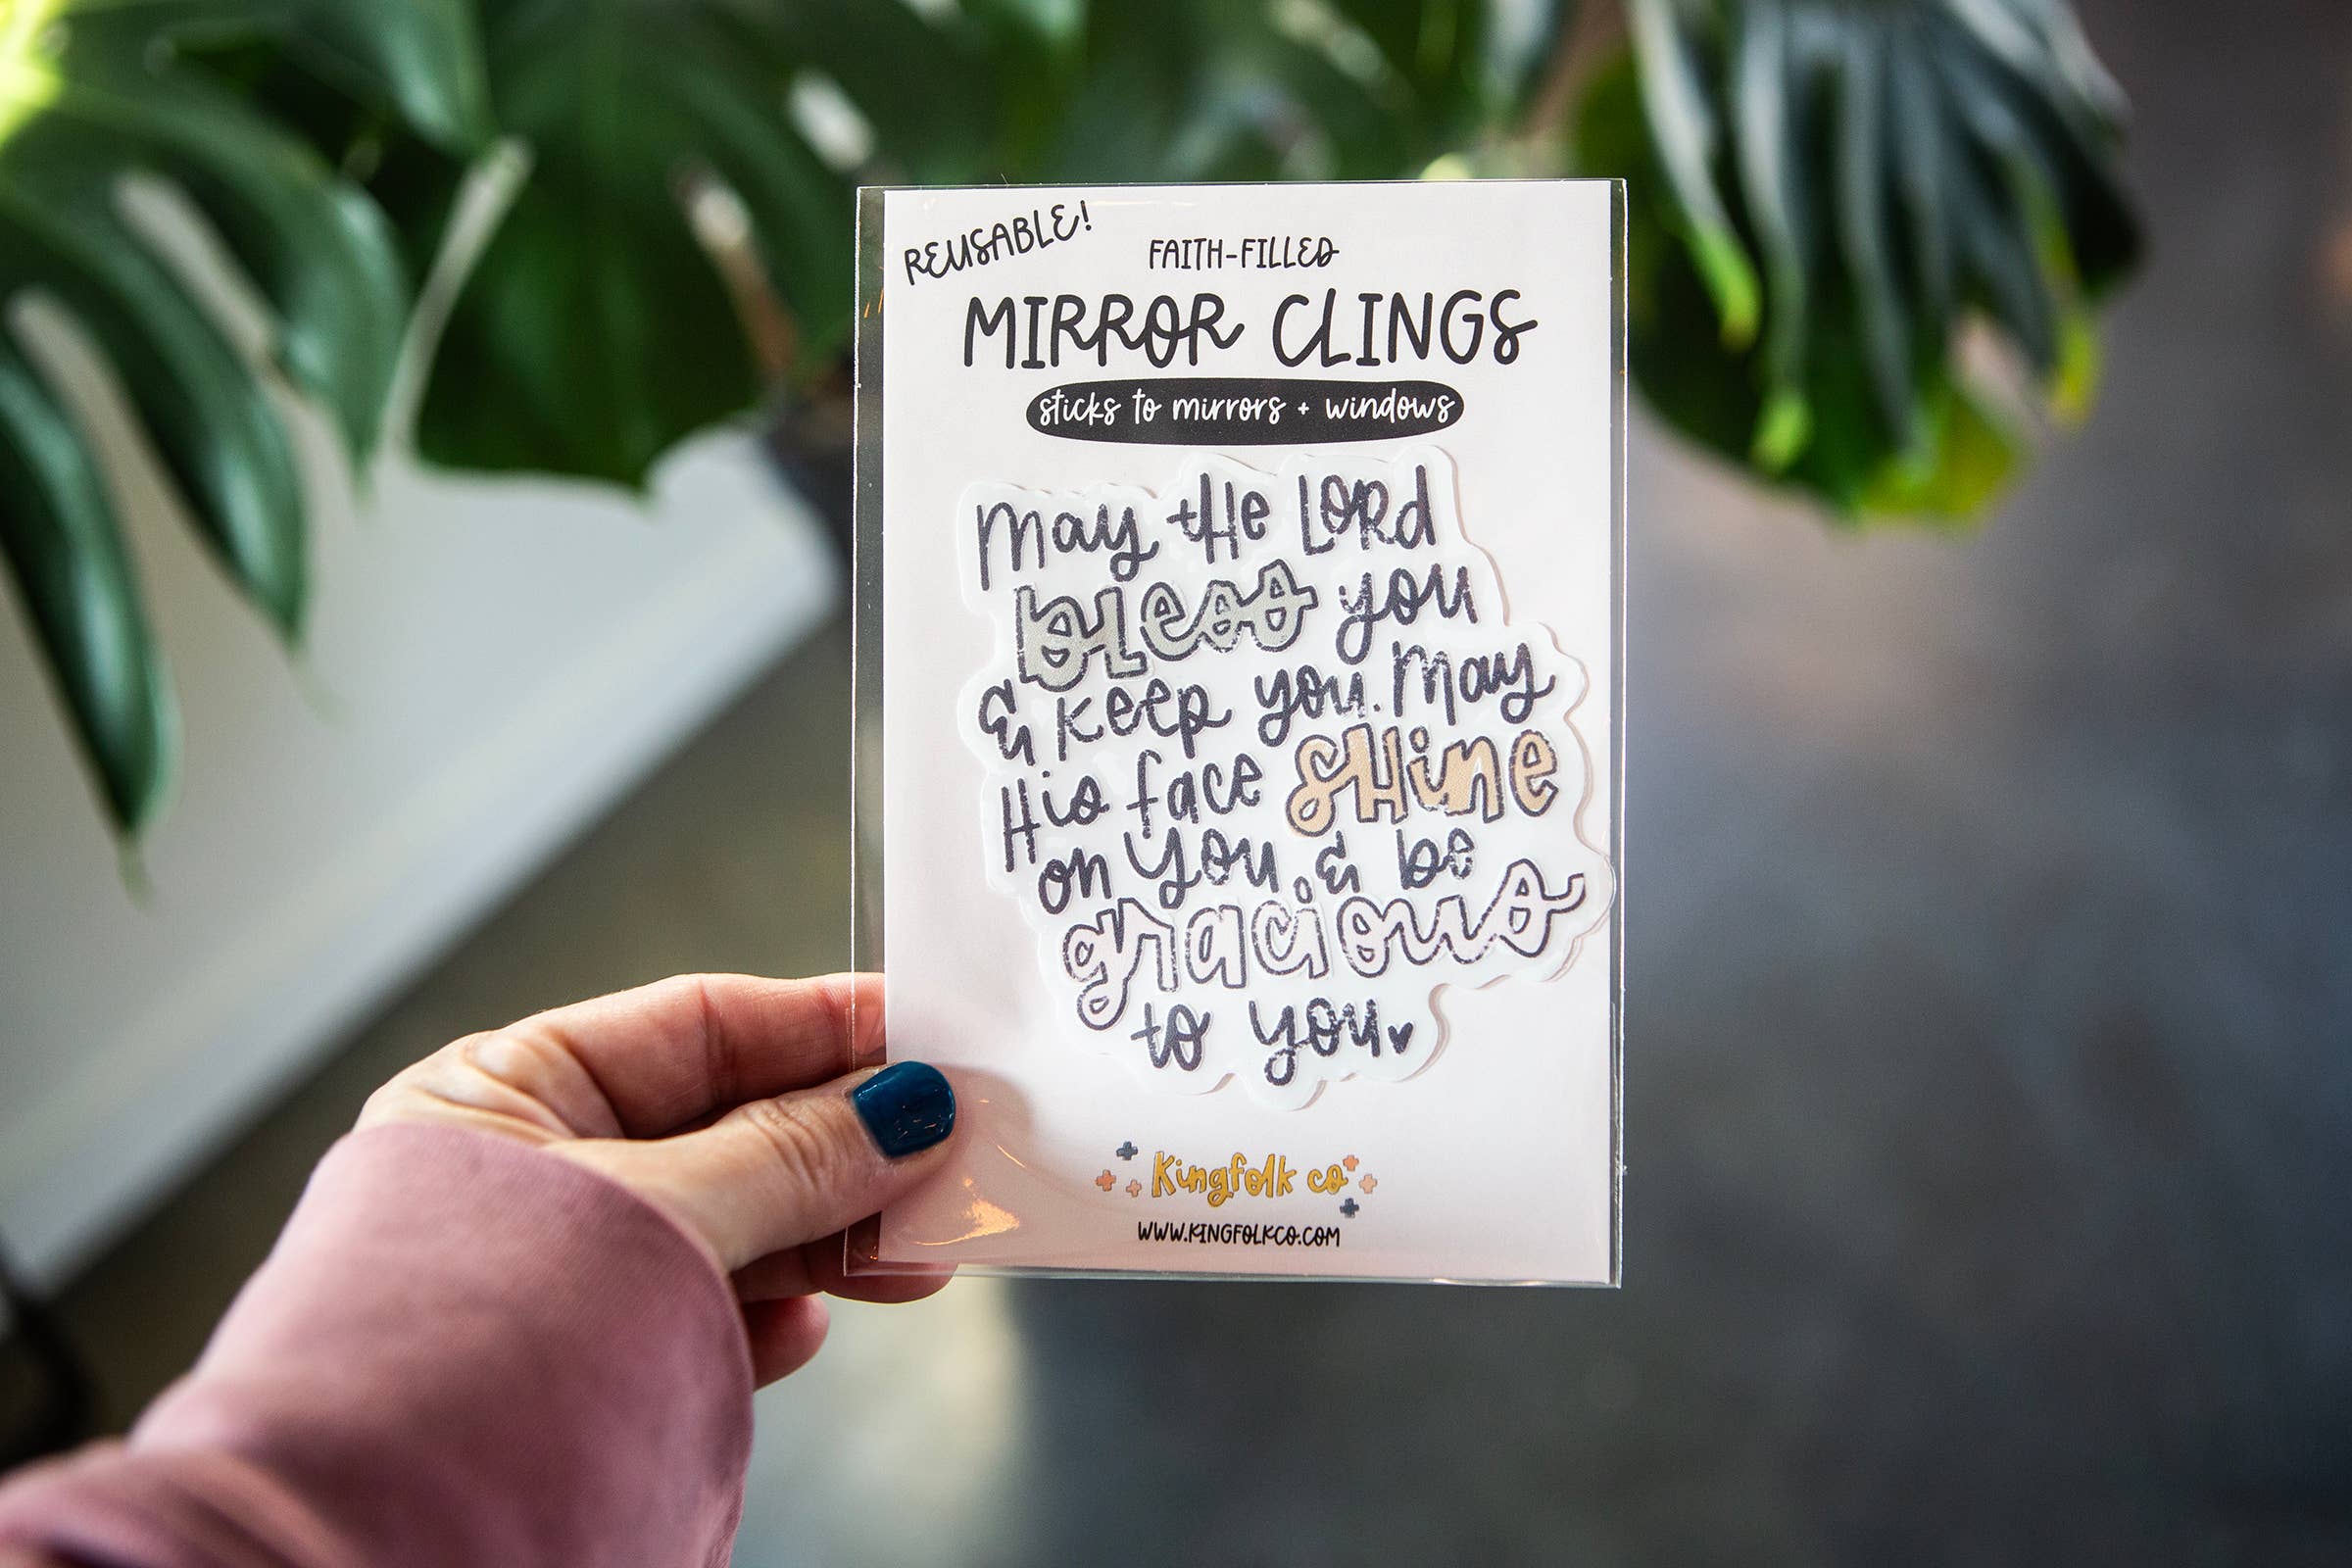 REUSABLE!
FAITH-FILLED
MIRROR CLINGS
sticks to mirrors + windows
May the Lord
bless you
& keep you. May
His face shine
on you & be
gracious
to you♥
Kingfolk co
WWW.KINGFOLKCO.COM